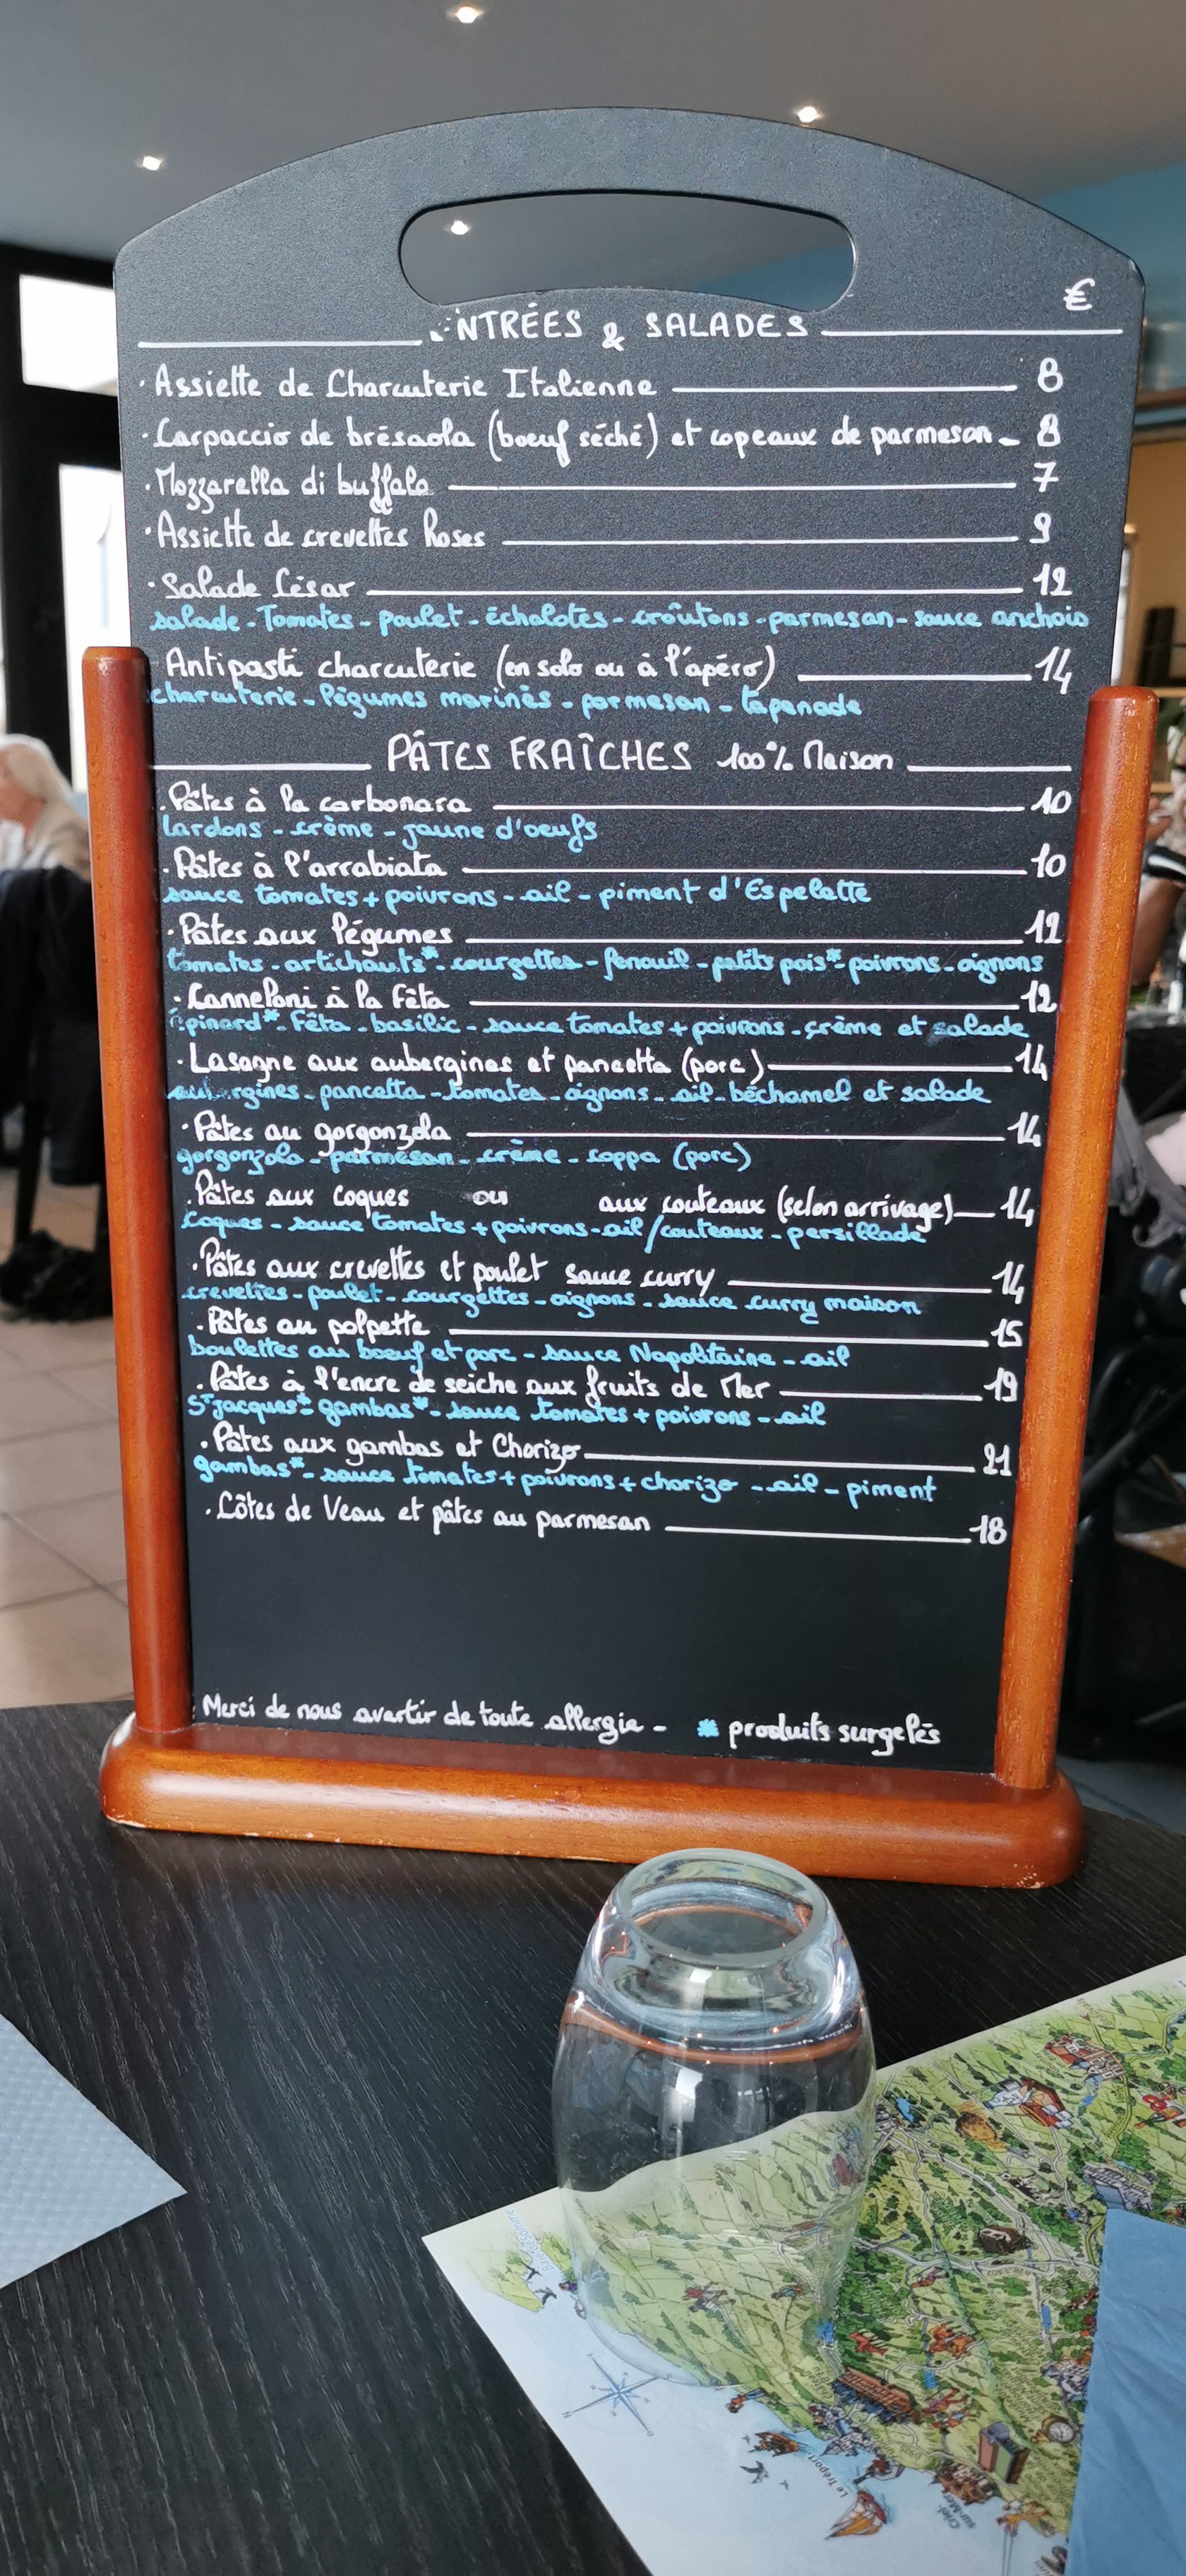 €
NTRÉES & SALADES
· Assiette de Charcuterie Italienne 8
· Carpaccio de brésaola (boeuf séché) et copeaux de parmesan - 8
· Mozzarella di buffala 7
· Assiette de crevettes Roses 9
· Salade César 12
salade - Tomates - poulet - échalotes - croûtons - parmesan - sauce anchois
Antipasti charcuterie (en solo ou à l'apéro) 14
charcuterie - légumes marinés - parmesan - tapenade
PÂTES FRAÎCHES 100% Maison
· Pâtes à la carbonara 10
lardons - crème - jaune d'oeufs
· Pâtes à l'arrabiata 10
sauce tomates + poivrons - ail - piment d'Espelette
· Pâtes aux légumes 12
tomates - artichauts* - courgettes - fenouil - petits pois* - poivrons - oignons
· Canneloni à la Fêta 12
épinard* - Fêta - basilic - sauce tomates + poivrons - crème et salade
· Lasagne aux aubergines et pancetta (porc) 14
aubergines - pancetta - tomates - oignons - ail - béchamel et salade
· Pâtes au gorgonzola 14
gorgonzola - parmesan - crème - coppa (porc)
· Pâtes aux coques ou aux couteaux (selon arrivage) 14
coques - sauce tomates + poivrons - ail / couteaux - persillade
· Pâtes aux crevettes et poulet sauce curry 14
crevettes - poulet - courgettes - oignons - sauce curry maison
· Pâtes au polpette 15
boulettes au boeuf et porc - sauce Napolitaine - ail
· Pâtes à l'encre de seiche aux fruits de Mer 19
St jacques* - gambas* - sauce tomates + poivrons - ail
· Pâtes aux gambas et Chorizo 21
gambas* - sauce tomates + poivrons + chorizo - ail - piment
· Côtes de Veau et pâtes au parmesan 18
Merci de nous avertir de toute allergie - * produits surgelés
Baie de Somme
Le Tréport
Criel-
sur-Mer